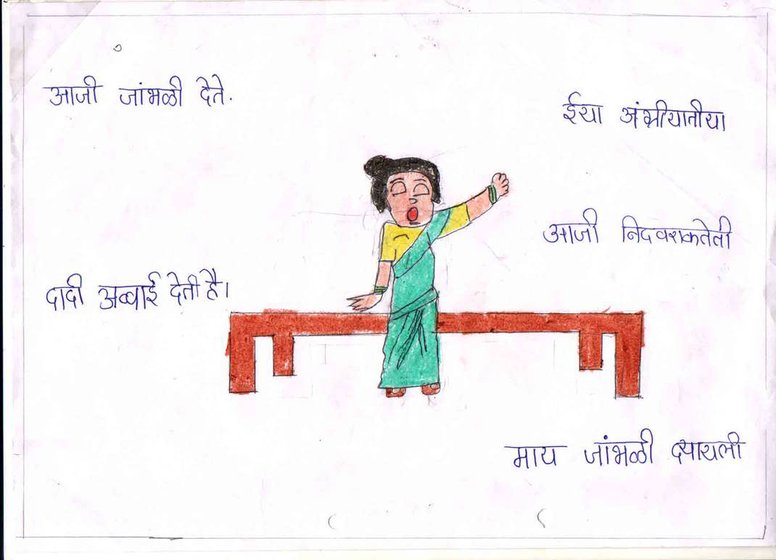 आजी जांभळी देते.
ईया अंभीयातीया
आजी निदवराकतेती
दादी अव्वाई देती है।
माय जांभळी दयायली